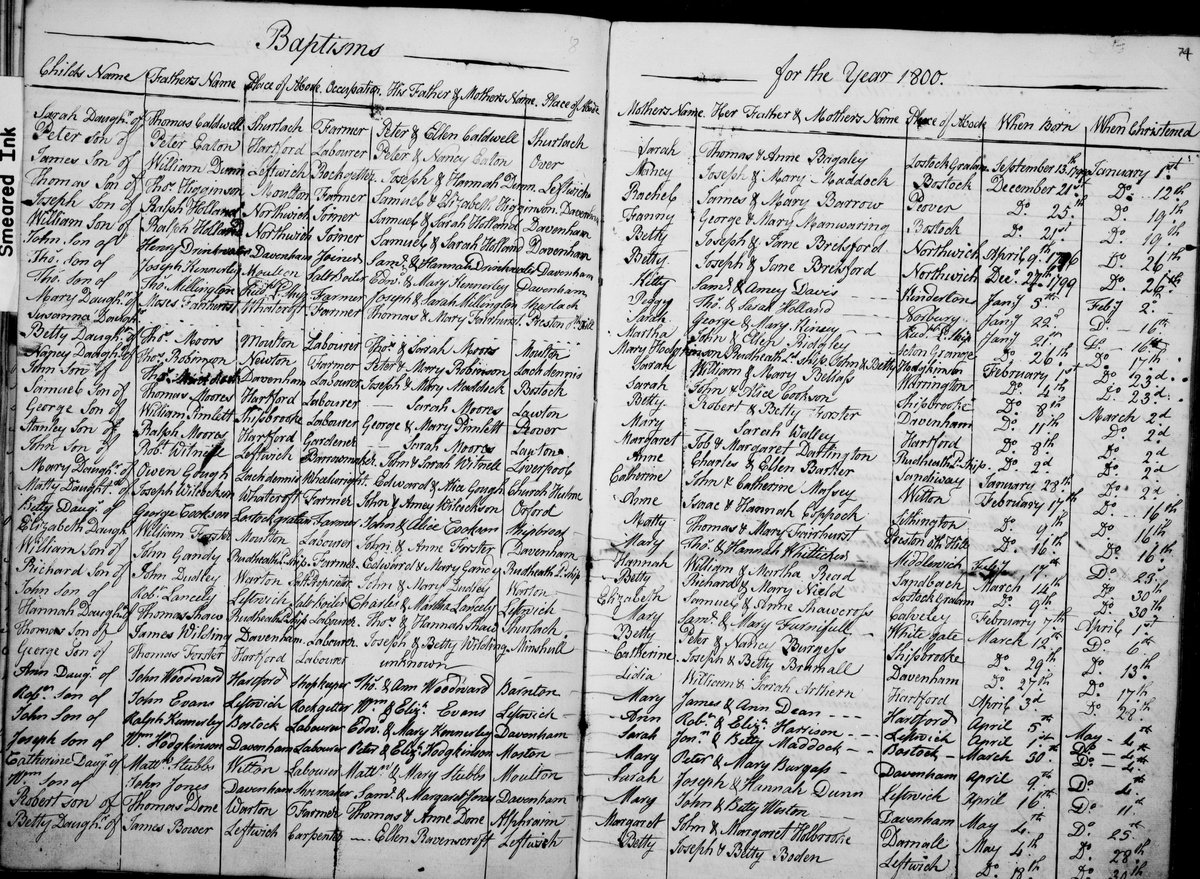 Smeared Ink
Baptisms
Childs Name Fathers Name Place of Abode Occupation His Father & Mothers Name Place of Abode
Sarah Daugh.r of Thomas Caldwell Shurlach Farmer Peter & Ellen Caldwell Shurlach
Peter Son of Peter Eaton Hartford Labourer Peter & Nancy Eaton Over
James Son of William Dunn Leftwich Rockgetter Joseph & Hannah Dunn Leftwich
Thomas Son of Thos. Higginson Moulton Farmer Samuel & Elizabeth Higginson Davenham
Joseph Son of Ralph Holland Northwich Joiner Samuel & Sarah Holland Davenham
William Son of Ralph Holland Northwich Joiner Samuel & Sarah Holland Davenham
John Son of Henry Drinkwater Davenham Joiner Saml. & Hannah Drinkwater Davenham
Tho. Son of Joseph Kennerley Moulton Saltboiler Edw. & Mary Kennerley Davenham
Tho. Son of Tho. Millington Farmer Joseph & Sarah Millington Sharlach
Mary Daugh.r of Moses Fairhurst Whatcroft Farmer Thomas & Mary Fairhurst Preston
Susanna Daugh.r of Thos. Moors Moulton Labourer Thos. & Sarah Moors Moulton
Betty Daugh.r of Thos. Robinson Newton Farmer Peter & Mary Robinson Lachdennis
Nancy Daugh.r of Thos. Davenham Labourer Joseph & Mary Maddock Bostock
John Son of Thomas Moores Hartford Labourer — Sarah Moores Lawton
Samuel Son of William Pimlett Shipbrooke Labourer George & Mary Pimlett Peover
George Son of Ralph Moores Hartford Gardener — Sarah Moores Layton
Stanley Son of Robt. Witnell Leftwich Barrowmaker John & Sarah Witnell Liverpool
John Son of Owen Gough Lachdennis Wheelwright Edward & Alice Gough Church Hulme
Mary Daugh.r of Joseph Wilcockson Whatcroft Farmer John & Amey Wilcockson Oxford
Matty Daught. of George Cookson Lostock gralam Farmer John & Alice Cookson Shipbrook
Betty Daug.r of William Forster Moulton Labourer John & Anne Forster Davenham
Elizabeth Daugh.r John Gandy Rudheath L.Ship Farmer Edward & Mary Gandy Rudheath L.Ship
William Son of John Dudley Warton Salt Proprietor John & Mary Dudley Warton
Richard Son of Rob. Lancely Leftwich Salt boiler Charles & Martha Lancely Leftwich
John Son of Thomas Shaw Rudheath L.Ship Labourer Thos. & Hannah Shaw Shurlach
Hannah Daugh.r of James Wilding Davenham Labourer Joseph & Betty Wilding Minshull
Thomas Son of Thomas Forster Hartford Labourer unknown
George Son of John Woodward Hartford Shopkeeper Tho. & Ann Woodward Barnton
Ann Daug.r of John Evans Leftwich Rockgetter Wm & Eliz. Evans Leftwich
Rob. Son of Ralph Kennerley Bostock Labourer Edw. & Mary Kennerley Davenham
John Son of Wm. Hodgkinson Davenham Labourer Peter & Eliz. Hodgkinson Moston
Joseph Son of Matt. Stubbs Witton Labourer Matt. & Mary Stubbs Moulton
Catherine Daug.r of John Jones Davenham Shoemaker Saml. & Margaret Jones Davenham
Wm Son of Thomas Done Warton Farmer Thomas & Anne Done Alphraim
Robert Son of James Bower Leftwich Carpenter — Ellen Ravenscroft Leftwich
Betty Daugh.r of
74
for the Year 1800.
Mothers Name Her Father & Mothers Name Place of Abode When Born When Christened
Sarah Thomas & Anne Brigaley Lostock Gralam September 13th 1799 January 1st
Nancy Joseph & Mary Maddock Bostock December 21st Do. 12th
Rachel James & Mary Barrow Peover Do. 25th Do. 19th
Fanny George & Mary Manwaring Bostock Do. 21st Do. 19.
Betty Joseph & Jane Brelsford Northwich April 9th 1796 Do. 26th
Betty Joseph & Jane Brelsford Northwich Decr. 27th 1799 Do. 26th
Kitty Saml. & Amey Davis Kinderton Jany 5th Feby 2d
Peggy Tho. & Sarah Holland Norbury Jany 22d Do. 16th
Sarah George & Mary Kinsey Jany 21st Do. 16th
Martha John & Ellen Ridgley Acton Grange Do. 26th Do. 17th
Mary Hodgkinson Rudheath L. Ship John & Betty Hodgkinson February 1st Do. 23d
Sarah William & Mary Bellass Warrington Do. 4th Do. 23d
Sarah John & Alice Cookson Shipbrooke Do. 8th March 2d
Betty Robert & Betty Forster Davenham Do. 11th Do. 2d
Mary — Sarah Walley Hartford Do. 8th Do. 2d
Margaret Job & Margaret Dartington Rudheath L.Ship Do. 2d Do. 2d
Anne Charles & Ellen Barker Sandiway January 28th Do. 2d
Catherine John & Catherine Massey Witton February 17th Do. 16th
Anne Isaac & Hannah Eppock Do. 9th Do. 16th
Matty Thomas & Mary Fairhurst Preston oth Hill Do. 16th Do. 16th
Mary Tho. & Hannah Whitticker Middlewich Feby 17th Do. 23d
Hannah William & Martha Read Sandbach March 14th Do. 30th
Betty Richard & Mary Nield Lostock Gralam Do. 9th Do. 30th
Elizabeth Samuel & Anne Shawcross Calveley February 7th April 1st
Mary Saml. & Mary Furnifull White gate March 12th Do. 6th
Betty Peter & Nancy Burgess Shipbrooke Do. 29th Do. 13th
Catherine Joseph & Betty Bramhall Davenham Do. 27th Do. 17th
Lidia William & Sarah Arthern Hartford April 3d Do. 28th
Mary James & Ann Dean Hartford April 5th May 4th
Ann Rob. & Eliz. Harrison Leftwich April 1st Do. 4th
Sarah Jon. & Betty Maddock Bostock March 30th Do. 4th
Mary Peter & Mary Burgess Davenham April 9th Do. 4th
Sarah Joseph & Hannah Dunn Leftwich April 16. Do. 11
Mary John & Betty Weston Davenham May 4th Do. 25th
Margaret John & Margaret Holbrooke Darnale May 4th Do. 28th
Betty Joseph & Betty Boden Leftwich Do. 18th Do. 30th